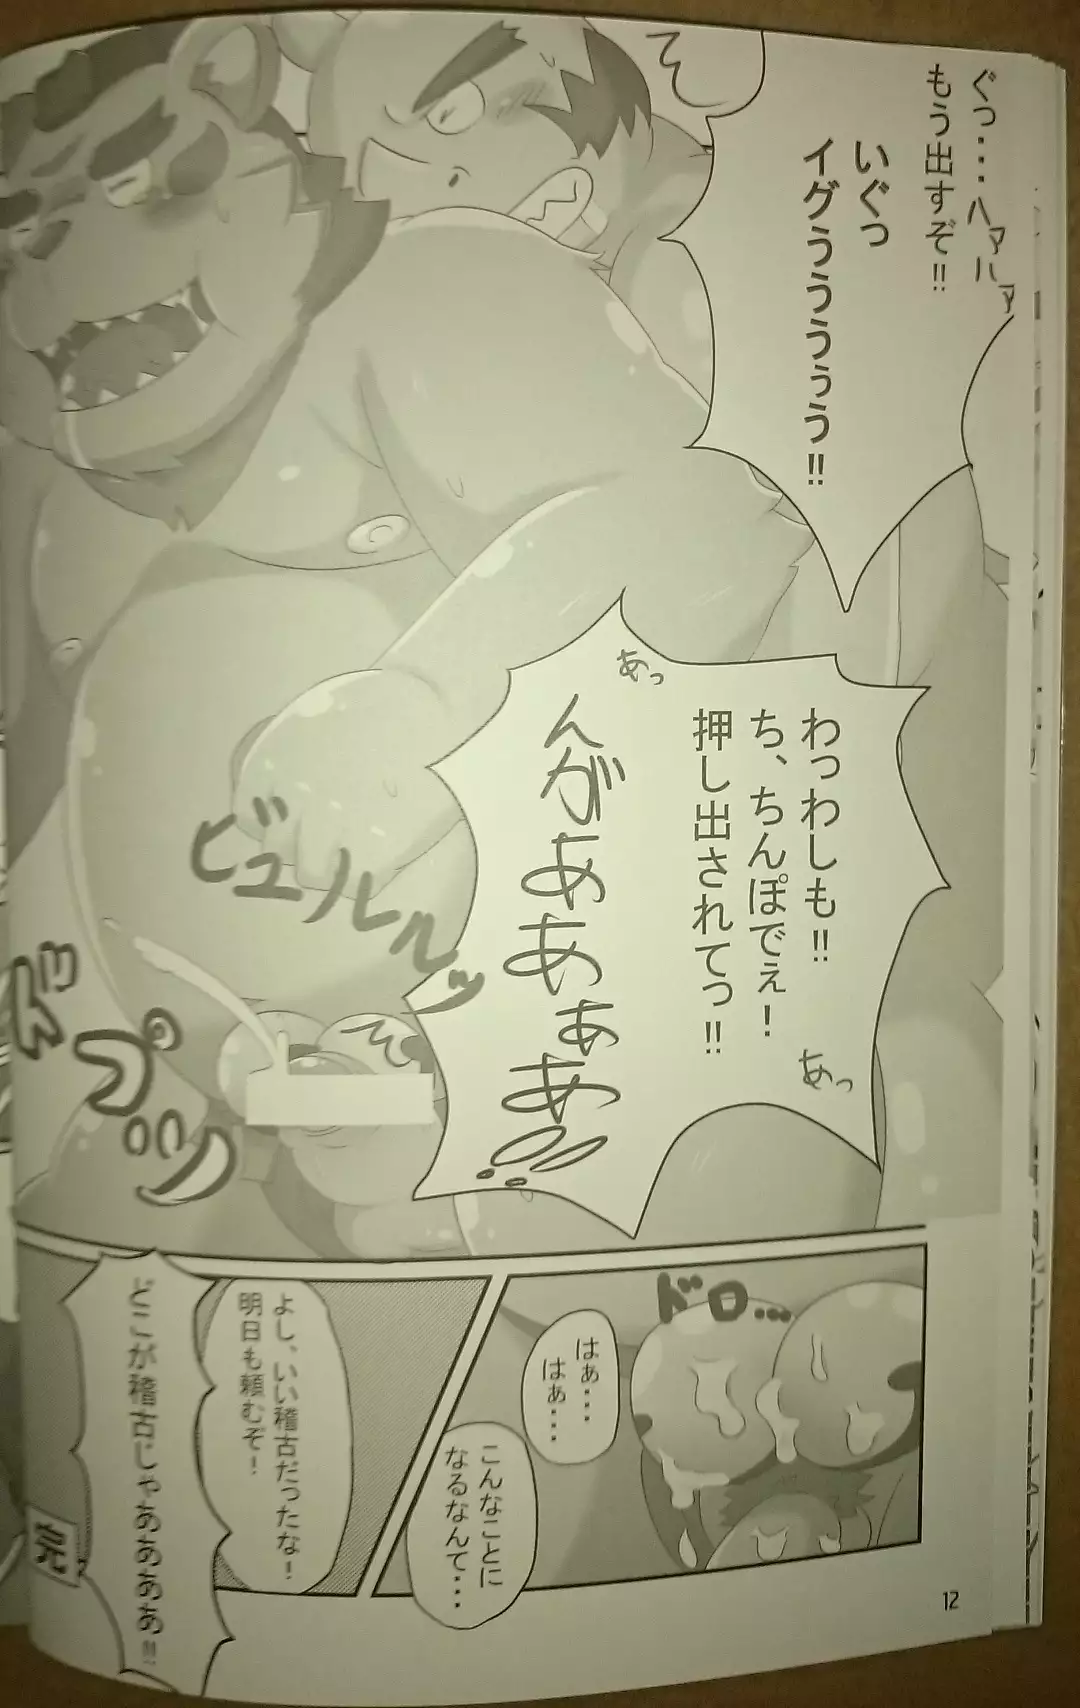 ぐっ・・・ハァハァ
もう出すぞ!!
いぐっ
イグぅぅぅぅぅ!!
わっわしも!!
ち、ちんぽでぇ！
押し出されてっ!!
あっ
あっ
んがああぁあ!!
ビュルルルッ
ドロ...
はぁ・・・
はぁ・・・
こんなことに
なるなんて・・・
よし、いい稽古だったな！
明日も頼むぞ！
どこが稽古じゃああああ!!
12